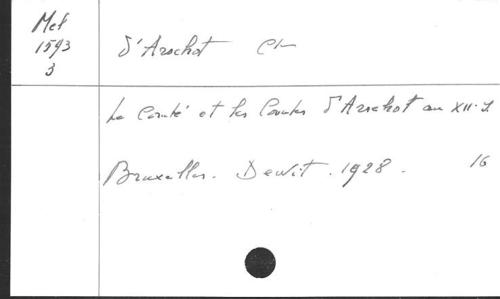 Mel
1593
3
d'Arschot Cte
Le Comté et les Comtes d'Arschot au XII. s.
Bruxelles. Dewit. 1928. 16